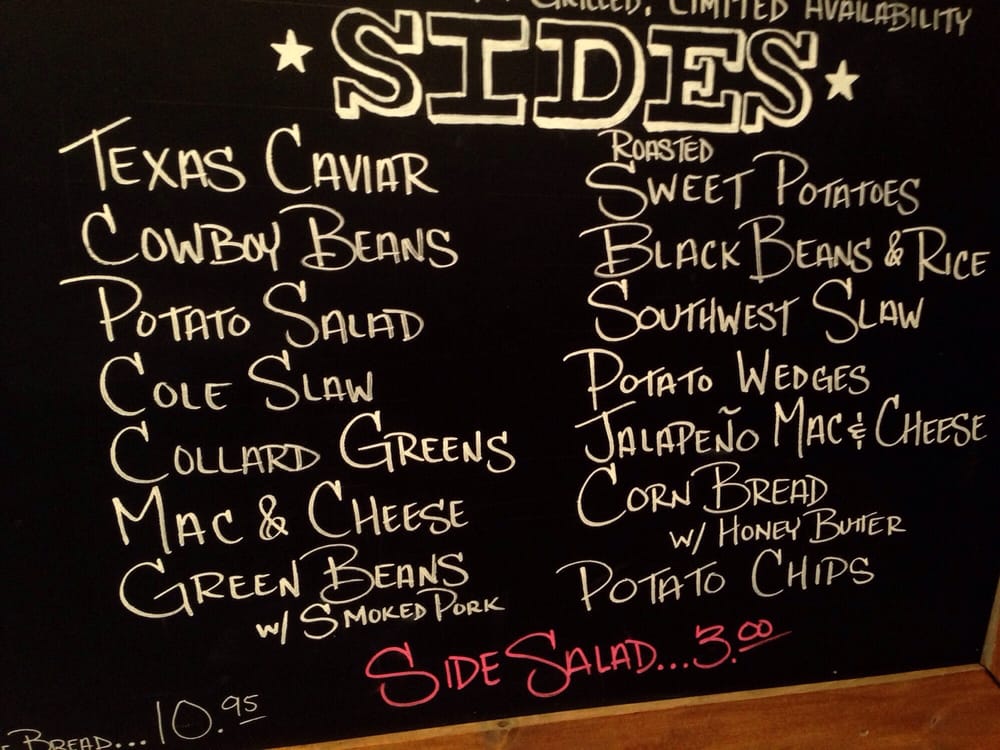 GRILLED, LIMITED AVAILABILITY
SIDES
TEXAS CAVIAR
COWBOY BEANS
POTATO SALAD
COLE SLAW
COLLARD GREENS
MAC & CHEESE
GREEN BEANS
W/ SMOKED PORK
ROASTED
SWEET POTATOES
BLACK BEANS & RICE
SOUTHWEST SLAW
POTATO WEDGES
JALAPEÑO MAC & CHEESE
CORN BREAD
W/ HONEY BUTTER
POTATO CHIPS
SIDE SALAD...3.00
BREAD...10.95